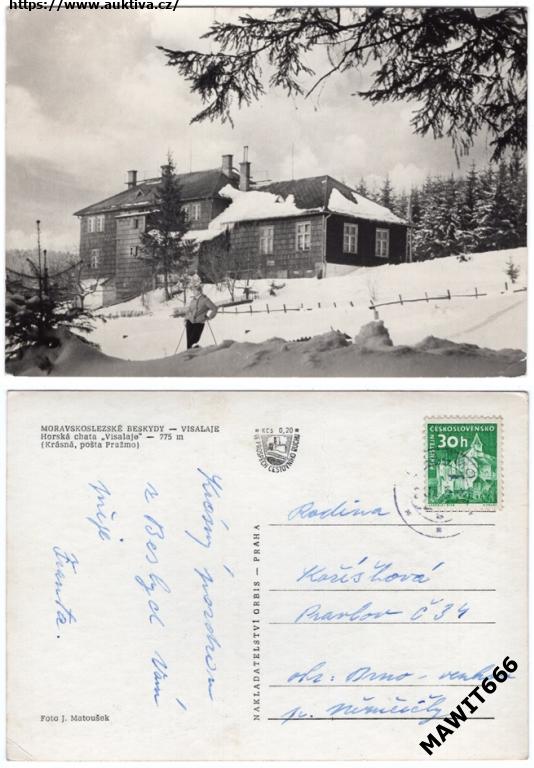 https://www.auktiva.cz/
MORAVSKOSLEZSKÉ BESKYDY — VISALAJE
Horská chata „Visalaje" — 775 m
(Krásná, pošta Pražmo)
Kčs 0,20
VE PROSPĚCH CESTOVNÍHO RUCHU
ČESKOSLOVENSKO
30h
PERNŠTEJN
Krásný pozdrav
z Beskyd Vám
přeje
Franta.
NAKLADATELSTVÍ ORBIS — PRAHA
Rodina
Kořístková
Pravlov č 34
okr: Brno - venkov
p. Němčičky
Foto J. Matoušek
MAWIT666